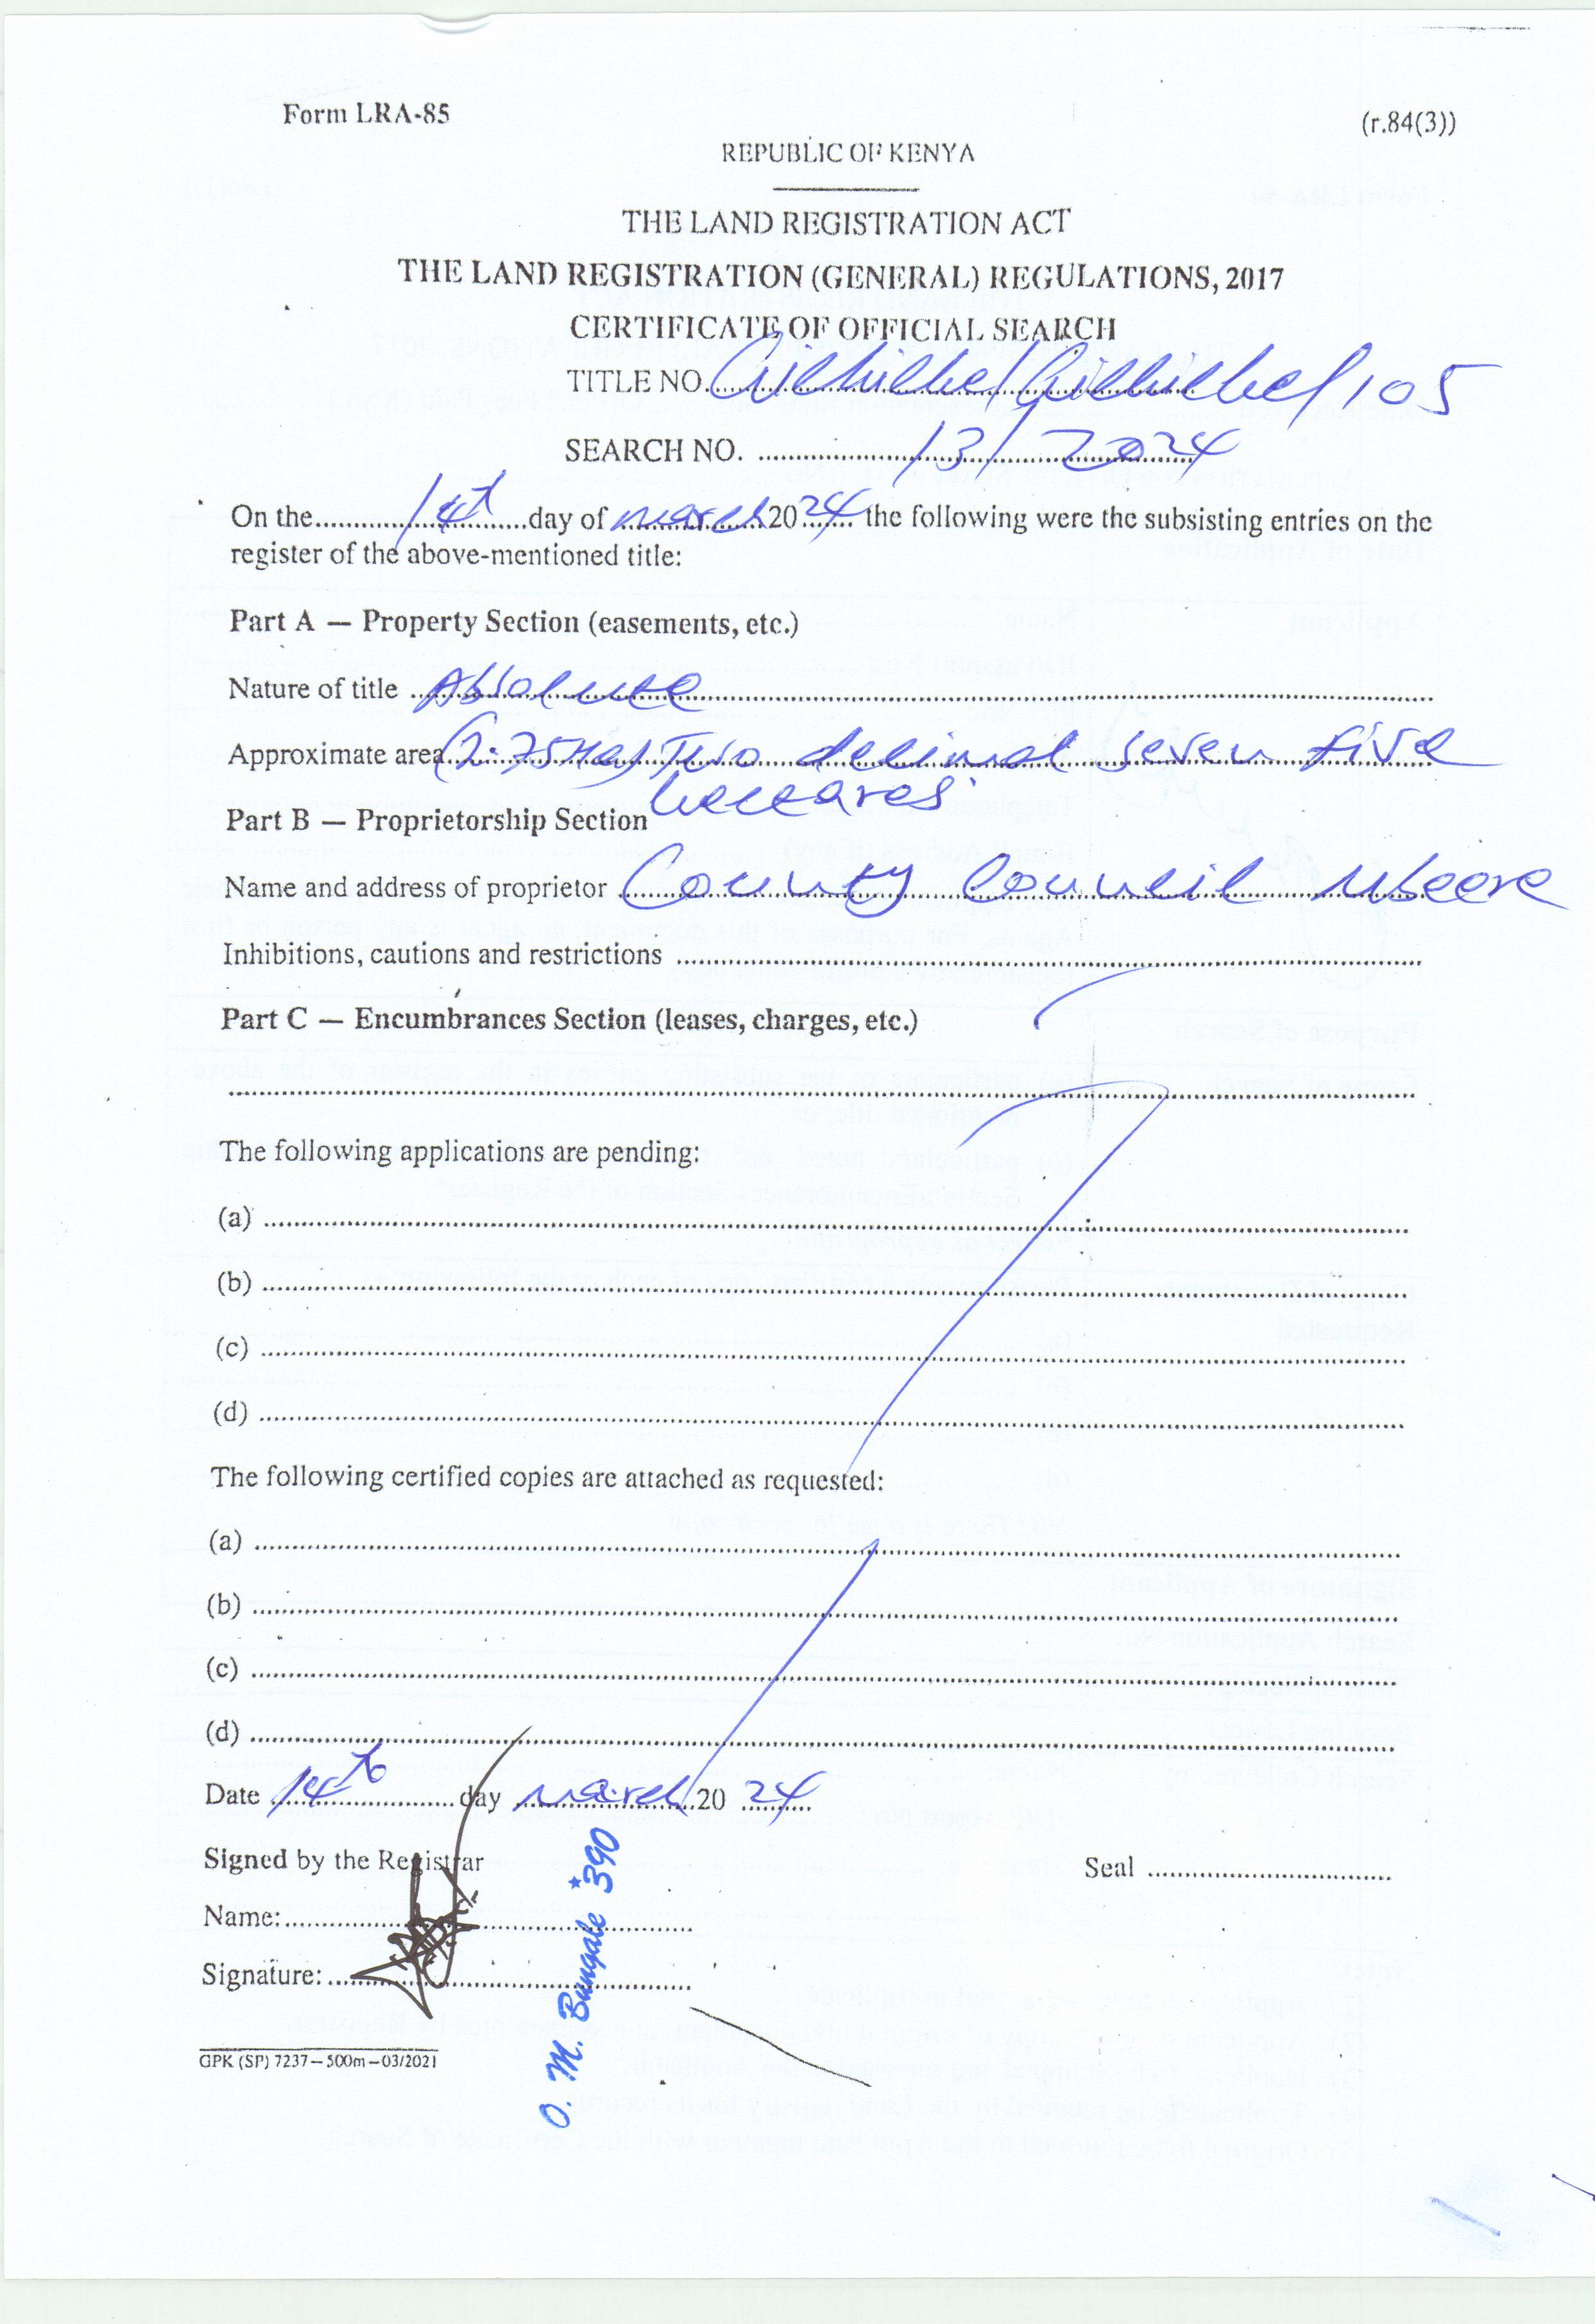 Form LRA-85
(r.84(3))
REPUBLIC OF KENYA
THE LAND REGISTRATION ACT
THE LAND REGISTRATION (GENERAL) REGULATIONS, 2017
CERTIFICATE OF OFFICIAL SEARCH
TITLE NO. /105
SEARCH NO. 13/2024
On the 14th day of march 2024 the following were the subsisting entries on the
register of the above-mentioned title:
Part A — Property Section (easements, etc.)
Nature of title Absolute
Approximate area (2.75Ha) Two decimal seven five
hectares
Part B — Proprietorship Section
Name and address of proprietor County Council Mbeere
Inhibitions, cautions and restrictions
Part C — Encumbrances Section (leases, charges, etc.)
The following applications are pending:
(a)
(b)
(c)
(d)
The following certified copies are attached as requested:
(a)
(b)
(c)
(d)
Date 14th day march 2024
Signed by the Registrar
Seal
Name:
Signature:
O. M. Bungale *390
GPK (SP) 7237—500m—03/2021